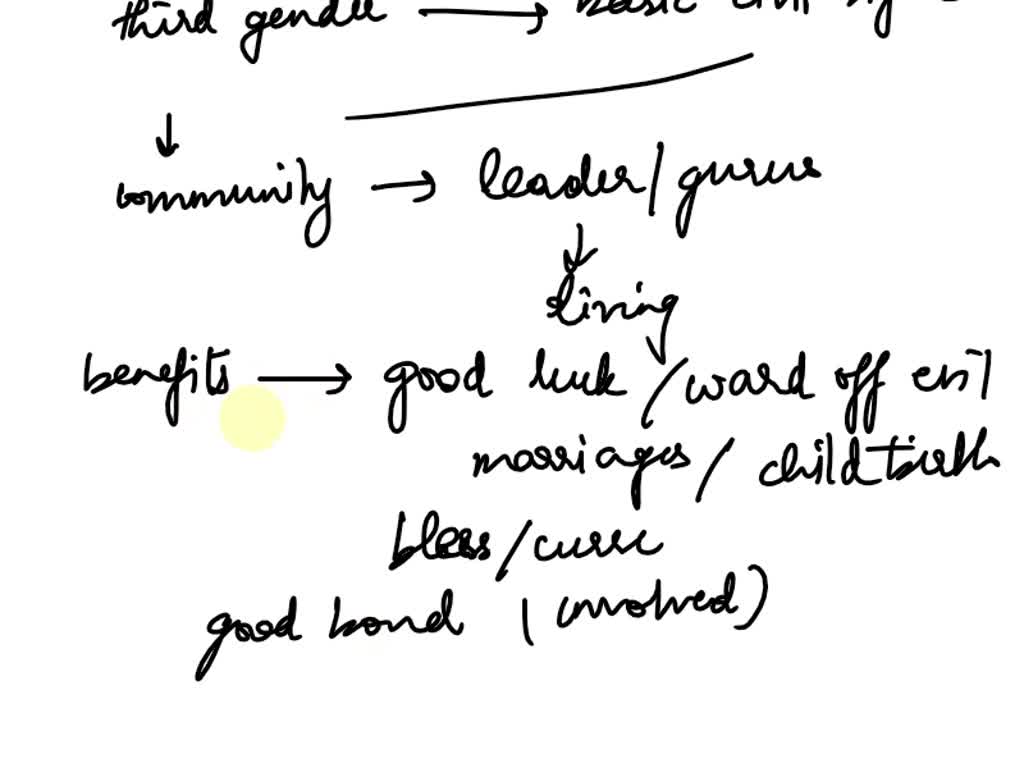 third gender → basic civil
↓
community → leader/gurus
↓
living
benefits → good luck /ward off evil
marriages / childbirth
bless/curse
good bond (involved)